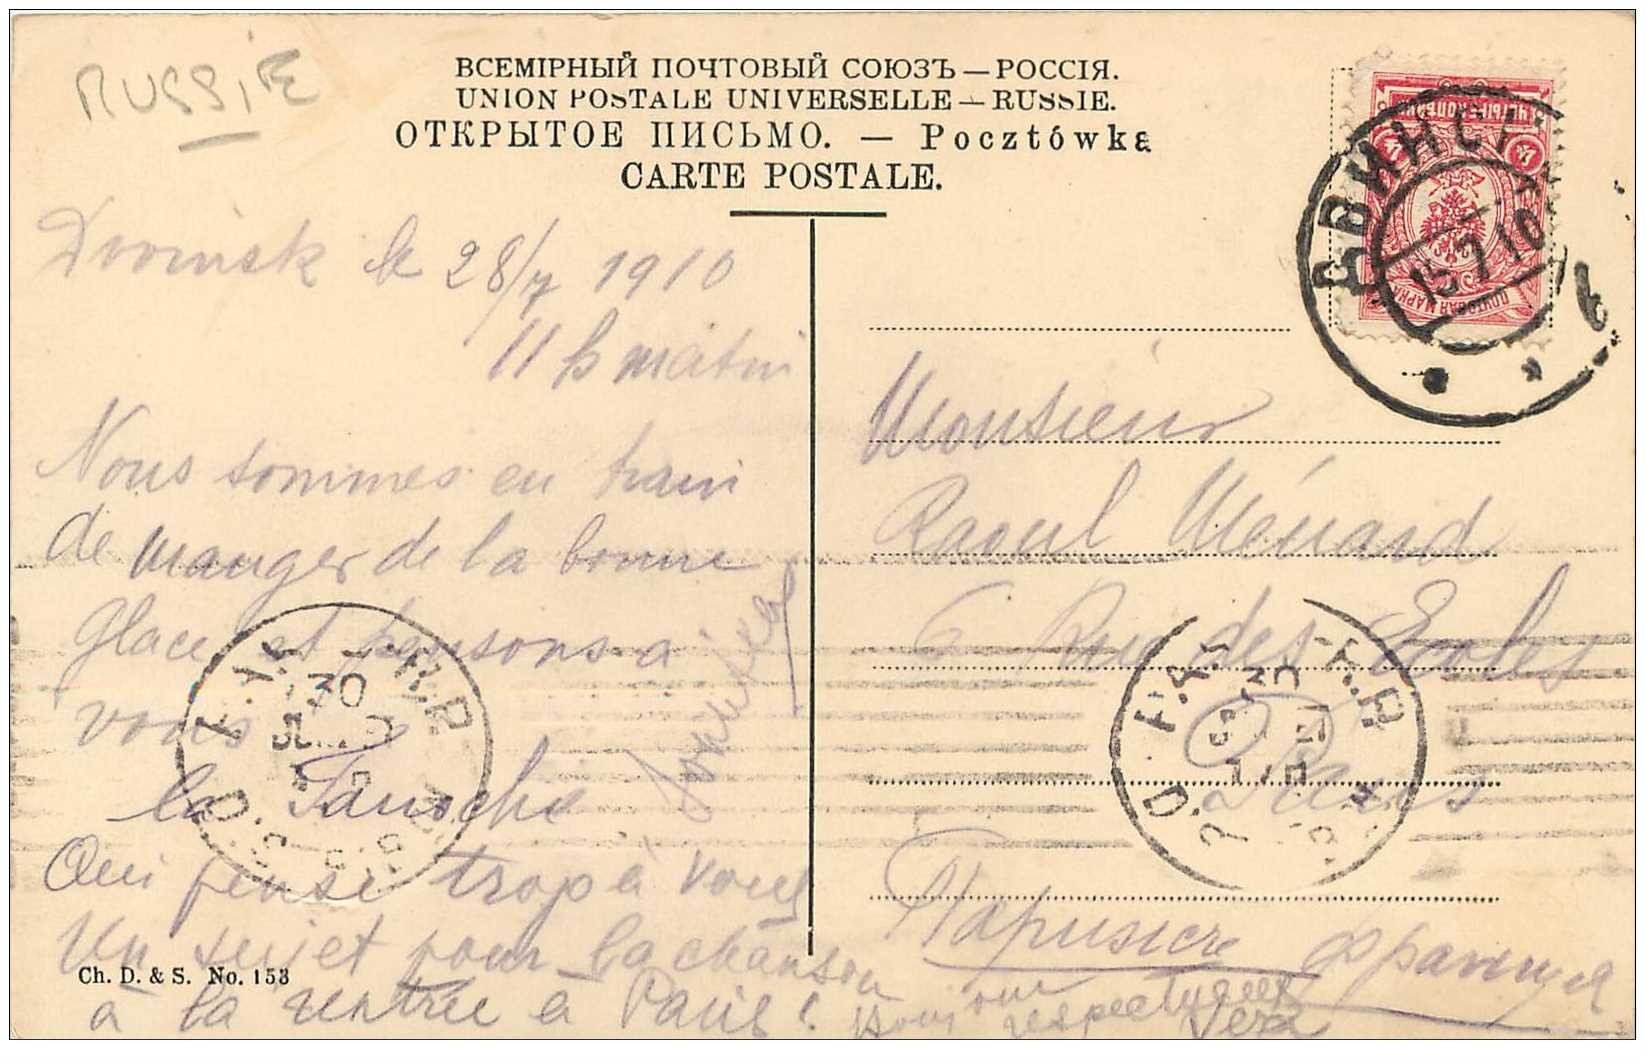 RUSSIE
ВСЕМІРНЫЙ ПОЧТОВЫЙ СОЮЗЪ — РОССІЯ.
UNION POSTALE UNIVERSELLE — RUSSIE.
ОТКРЫТОЕ ПИСЬМО. — Pocztówka
CARTE POSTALE.
ДВИНСК
15 7 10
ПОЧТОВАЯ МАРКА
Dvinsk le 28/7 1910
11 h matin
Nous sommes en train
de manger de la bonne
glace et pensons a
vous
la
Qui pense trop à vous
Un sujet pour la chanson
à la rentrée à Paris!
Monsieur
Raoul Ménard
6 Rue des Ecoles
Paris
Vera
30
Ch. D. & S. No. 153